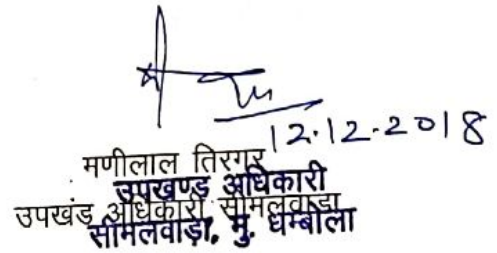 12.12.2018
मणीलाल तिरगर
उपखण्ड अधिकारी
उपखंड अधिकारी सीमलवाड़ा
सीमलवाड़ा, मु. धम्बोला